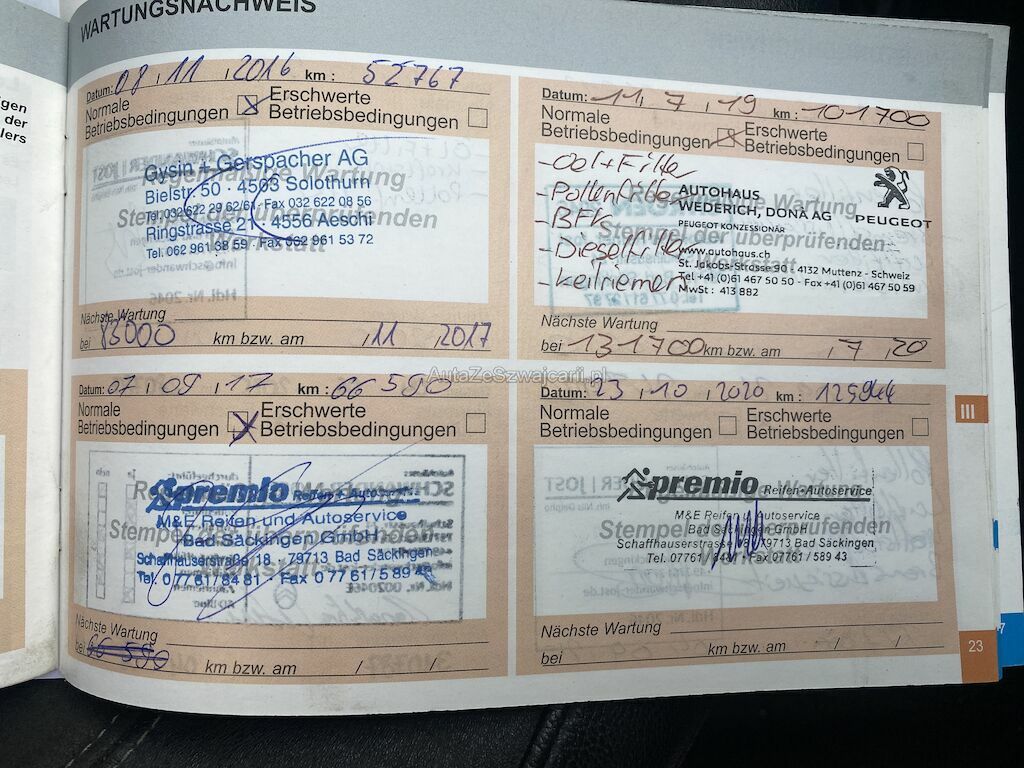 WARTUNGSNACHWEIS
igen
der
lers
Datum: 08 , 11 , 2016 km : 52767
Normale Betriebsbedingungen ☒ Erschwerte Betriebsbedingungen ☐
Gysin + Gerspacher AG
Bielstr. 50 · 4503 Solothurn
Tel. 032 622 29 62/61 · Fax 032 622 08 56
Ringstrasse 21 · 4556 Aeschi
Tel. 062 961 68 59 · Fax 062 961 53 72
Stempel der überprüfenden
Nächste Wartung
bei 83000 km bzw. am , 11 , 2017
Datum: 07 , 09 , 17 km : 66 590
Normale Betriebsbedingungen ☒ Erschwerte Betriebsbedingungen ☐
premio Reifen-Autoservice
M&E Reifen und Autoservice
Bad Säckingen GmbH
Schaffhauserstraße 18 · 79713 Bad Säckingen
Tel. 0 77 61 / 84 81 · Fax 0 77 61 / 5 89 43
Nächste Wartung
bei 66 590 km bzw. am / /
Datum: 11 , 7 , 19 km : 101700
Normale Betriebsbedingungen ☒ Erschwerte Betriebsbedingungen ☐
- Oel + Filter
- Pollenfilter
- BFK
- Dieselfilter
- Keilriemen
AUTOHAUS
WEDERICH, DONÀ AG
PEUGEOT KONZESSIONÄR
PEUGEOT
www.autohaus.ch
St. Jakobs-Strasse 90 · 4132 Muttenz - Schweiz
Tel +41 (0)61 467 50 50 - Fax +41 (0)61 467 50 59
MwSt : 413 882
Stempel der überprüfenden
Werkstatt
Nächste Wartung
bei 131700 km bzw. am , 7 , 20
Datum: 23 , 10 , 2020 km : 125944
Normale Betriebsbedingungen ☐ Erschwerte Betriebsbedingungen ☐
premio Reifen-Autoservice
M&E Reifen und Autoservice
Bad Säckingen GmbH
Schaffhauserstrasse 79713 Bad Säckingen
Tel. 07761 / Fax 07761 / 589 43
Stempel der überprüfenden
Werkstatt
Nächste Wartung
bei km bzw. am / /
III
23
AutaZeSzwajcarii.pl